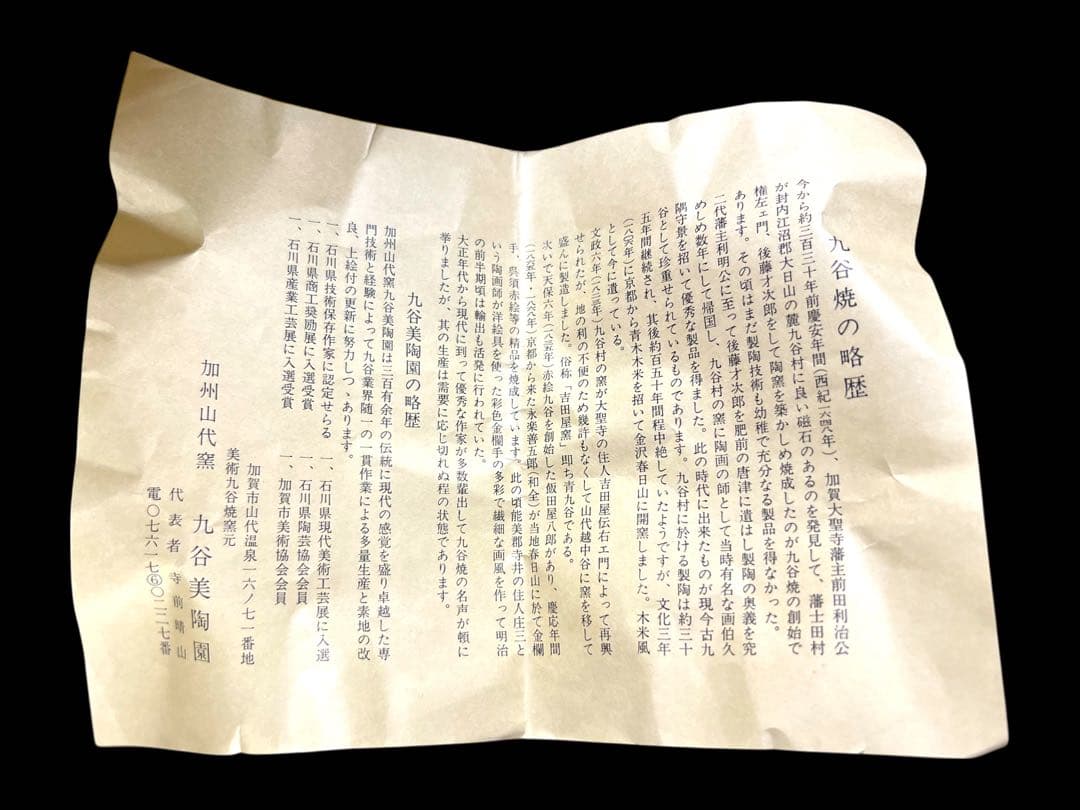 九谷焼の略歴
今から約三百三十年前慶安年間(西紀一六四八年)、加賀大聖寺藩主前田利治公
が封内江沼郡大日山の麓九谷村に良い磁石のあるのを発見して、藩士田村
権左ェ門、後藤才次郎をして陶窯を築かしめ焼成したのが九谷焼の創始で
あります。その頃はまだ製陶技術も幼稚で充分なる製品を得なかった。
二代藩主利明公に至って後藤才次郎を肥前の唐津に遣はし製陶の奥義を究
めしめ数年にして帰国し、九谷村の窯に陶画の師として当時有名な画伯久
隅守景を招いて優秀な製品を得ました。此の時代に出来たものが現今古九
谷として珍重せられているものであります。九谷村に於ける製陶は約三十
五年間継続され、其後約百五十年間程中絶していたようですが、文化三年
(一八〇六年)に京都から青木木米を招いて金沢春日山に開窯しました。木米風
として今に遺っている。
文政六年(一八二三年)九谷村の窯が大聖寺の住人吉田屋伝右エ門によって再興
せられたが、地の利の不便のため幾許もなくして山代越中谷に窯を移して
盛んに製造しました。俗称「吉田屋窯」即ち青九谷である。
次いで天保六年(一八三五年)赤絵九谷を創始した飯田屋八郎があり、慶応年間
(一八六五年・一八六八年)京都から来た永楽善五郎(和全)が当地春日山に於て金欄
手、呉須赤絵等の精品を焼成しています。此の頃能美郡寺井の住人庄三と
いう陶画師が洋絵具を使った彩色金欄手の多彩で繊細な画風を作って明治
の前半期頃は輸出も活発に行われていた。
大正年代から現代に到って優秀な作家が多数輩出して九谷焼の名声が頓に
挙りましたが、其の生産は需要に応じ切れぬ程の状態であります。
九谷美陶園の略歴
加州山代窯九谷美陶園は三百有余年の伝統に現代の感覚を盛り卓越した専
門技術と経験によって九谷業界随一の一貫作業による多量生産と素地の改
良、上絵付の更新に努力しつゝあります。
一、石川県技術保存作家に認定せらる
一、石川県現代美術工芸展に入選
一、石川県商工奨励展に入選受賞
一、石川県陶芸協会会員
一、石川県産業工芸展に入選受賞
一、加賀市美術協会会員
加賀市山代温泉一六ノ七一番地
美術九谷焼窯元
加州山代窯 九谷美陶園
代表者 寺前晴山
電〇七六一七⑥〇二二七番